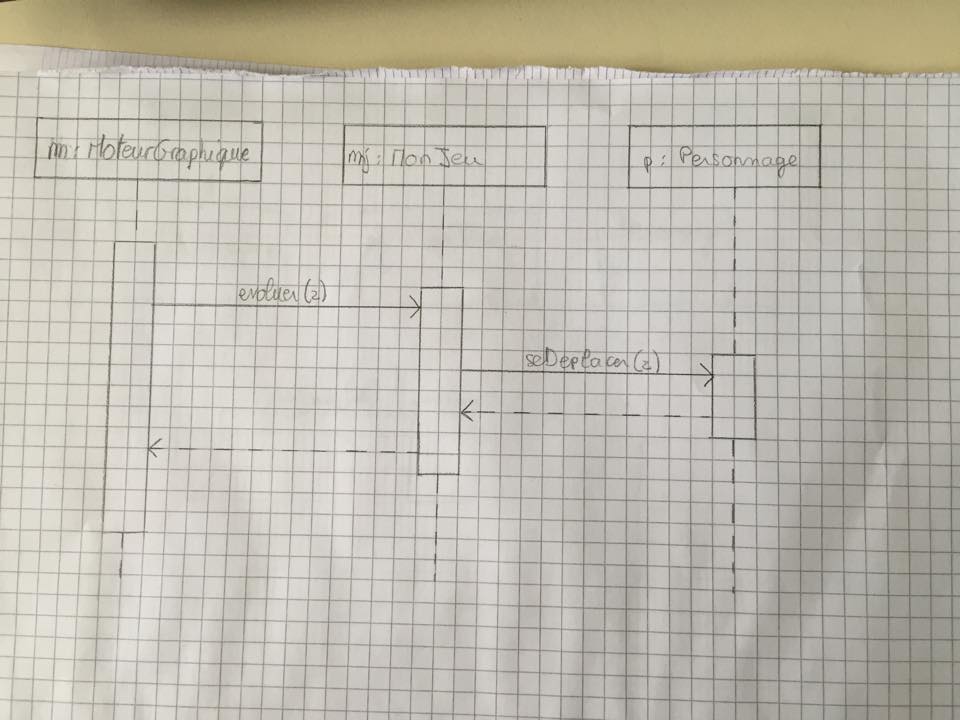 m : MoteurGraphique
mj : MonJeu
p : Personnage
evoluer(z)
seDeplacer(z)